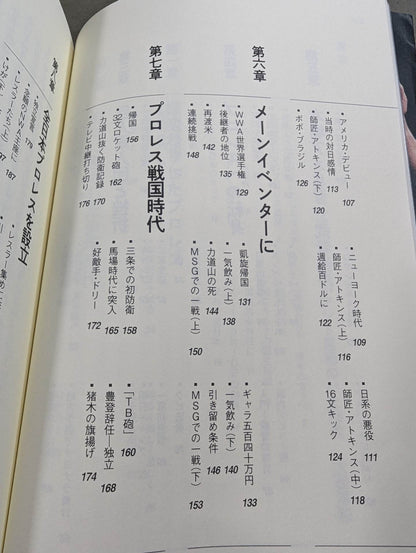 ・アメリカ・デビュー 107 ・ニューヨーク時代 109 ・日系の悪役 111
・当時の対日感情 113 ・師匠・アトキンス(上) 116 ・師匠・アトキンス(中) 118
・師匠・アトキンス(下) 120 ・週給百ドルに 122 ・16文キック 124
・ボボ・ブラジル 126
第六章 メーンイベンターに
・WWA世界選手権 129 ・凱旋帰国 131 ・ギャラ五百四十万円 133
・後継者の地位 135 ・一気飲み(上) 138 ・一気飲み(下) 140
・再渡米 142 ・力道山の死 144 ・引き留め条件 146
・連続挑戦 148 ・MSGでの一戦(上) 150 ・MSGでの一戦(下) 153
第七章 プロレス戦国時代
・帰国 156 ・三条での初防衛 158 ・「TB砲」 160
・32文ロケット砲 162 ・馬場時代に突入 165 ・豊登辞任―独立 168
・力道山抜く防衛記録 170 ・好敵手・ドリー 172 ・猪木の旗揚げ 174
・テレビ中継打ち切り 176
全日本プロレスを設立
179 ・レスラー集め
187